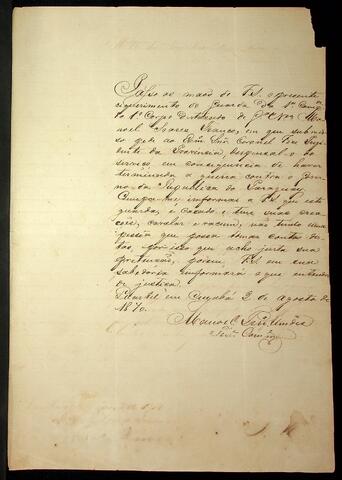 Passo as mãos de V.S. o presente
requerimento do guarda da 4ª Comp.
do 1º Corpo Destacado de G.C. Nos Ma-
noel Soares Franco, em que submis-
so pede ao Exmo Snr Coronel Vice Presi-
dente da Provincia dispensa do
serviço, em consequencia de haver
terminado a guerra contra o Gover-
no da Republica do Paraguay
Cumpre-me informar a V.S. que este
guarda, é casado, e tem suas crea-
ções, cavalar e vacum, não tendo uma
pessôa que possa tomar conta des-
tas, por isso que acho justa sua
pretenção, porem V.S. em sua
sabedoria informará o que entender
de justiça.
Quartel em Cuyabá 2 de agosto de
1870.
Manoel